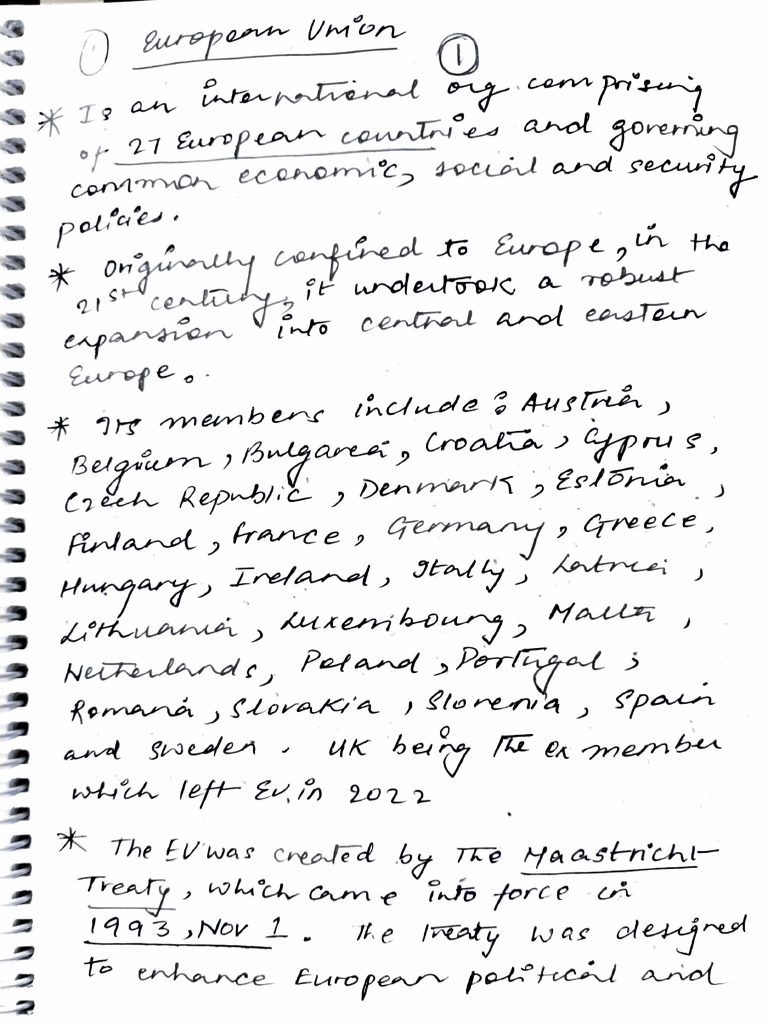 ① European Union ①
* Is an international org comprising
of 27 European countries and governing
common economic, social and security
policies.
* Originally confined to Europe, in the
21st century, it undertook a robust
expansion into central and eastern
Europe.
* Its members include : Austria,
Belgium, Bulgaria, Croatia, Cyprus,
Czech Republic, Denmark, Estonia,
Finland, france, Germany, Greece,
Hungary, Ireland, Itally, Latvia,
Lithuania, Luxembourg, Malta,
Netherlands, Poland, Portugal,
Romana, Slovakia, Slovenia, Spain
and Sweden. UK being the ex member
which left EU. in 2022
* The EU was created by The Maastricht
Treaty, which came into force in
1993, Nov 1. The treaty was designed
to enhance European political and